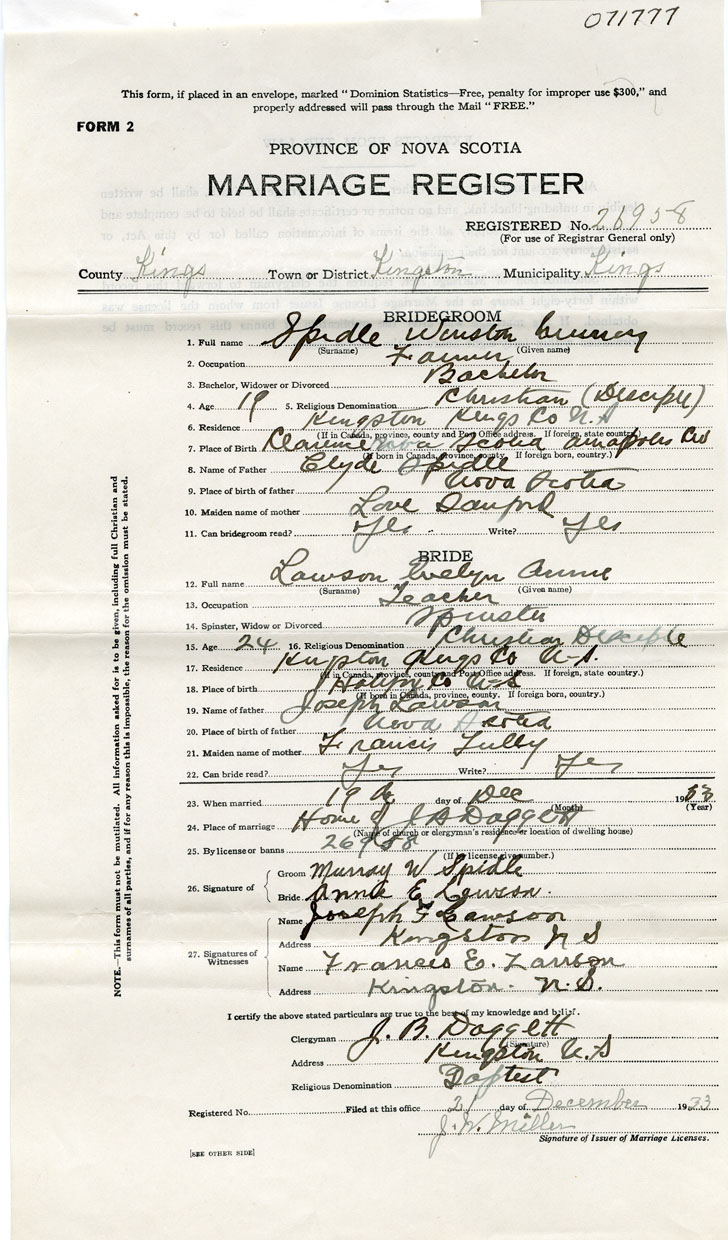 071777
This form, if placed in an envelope, marked "Dominion Statistics—Free, penalty for improper use $300," and
properly addressed will pass through the Mail "FREE."
FORM 2
PROVINCE OF NOVA SCOTIA
MARRIAGE REGISTER
REGISTERED No. 26958
(For use of Registrar General only)
County Kings Town or District Kingston Municipality Kings
BRIDEGROOM
1. Full name Spidle Winston Murray
(Surname) (Given name)
2. Occupation Farmer
3. Bachelor, Widower or Divorced Bachelor
4. Age 19 5. Religious Denomination Christian (Disciple)
6. Residence Kingston Kings Co N.S
(If in Canada, province, county and Post Office address. If foreign, state country.)
7. Place of Birth Clarence Nova Scotia Annapolis Co
(If born in Canada, province, county. If foreign born, country.)
8. Name of Father Clyde Spidle
9. Place of birth of father Nova Scotia
10. Maiden name of mother Love
11. Can bridegroom read? Yes Write? Yes
BRIDE
12. Full name Lawson Evelyn Annie
(Surname) (Given name)
13. Occupation Teacher
14. Spinster, Widow or Divorced Spinster
15. Age 24 16. Religious Denomination Christian Disciple
17. Residence Kingston Kings Co N.S.
(If in Canada, province, county and Post Office address. If foreign, state country.)
18. Place of birth Co N.S
(If born in Canada, province, county. If foreign born, country.)
19. Name of father Joseph Lawson
20. Place of birth of father Nova Scotia
21. Maiden name of mother Francis Tully
22. Can bride read? Yes Write? Yes
23. When married 19th day of Dec 1933
(Month) (Year)
24. Place of marriage Home of J B Daggett
(Name of church or clergyman's residence or location of dwelling house)
25. By license or banns 26958
(If by license give number.)
26. Signature of
Groom Murray W Spidle
Bride Annie E Lawson.
27. Signatures of Witnesses
Name Joseph F Lawson
Address Kingston N S
Name Frances E. Lawson
Address Kingston. N.S.
I certify the above stated particulars are true to the best of my knowledge and belief.
Clergyman J. B. Daggett
(Signature)
Address Kingston N.S
Religious Denomination Baptist
Registered No. Filed at this office 21 day of December 1933
J. W. Miller
Signature of Issuer of Marriage Licenses.
[SEE OTHER SIDE]
NOTE.—This form must not be mutilated. All information asked for is to be given, including full Christian and
surnames of all parties, and if for any reason this is impossible, the reason for the omission must be stated.